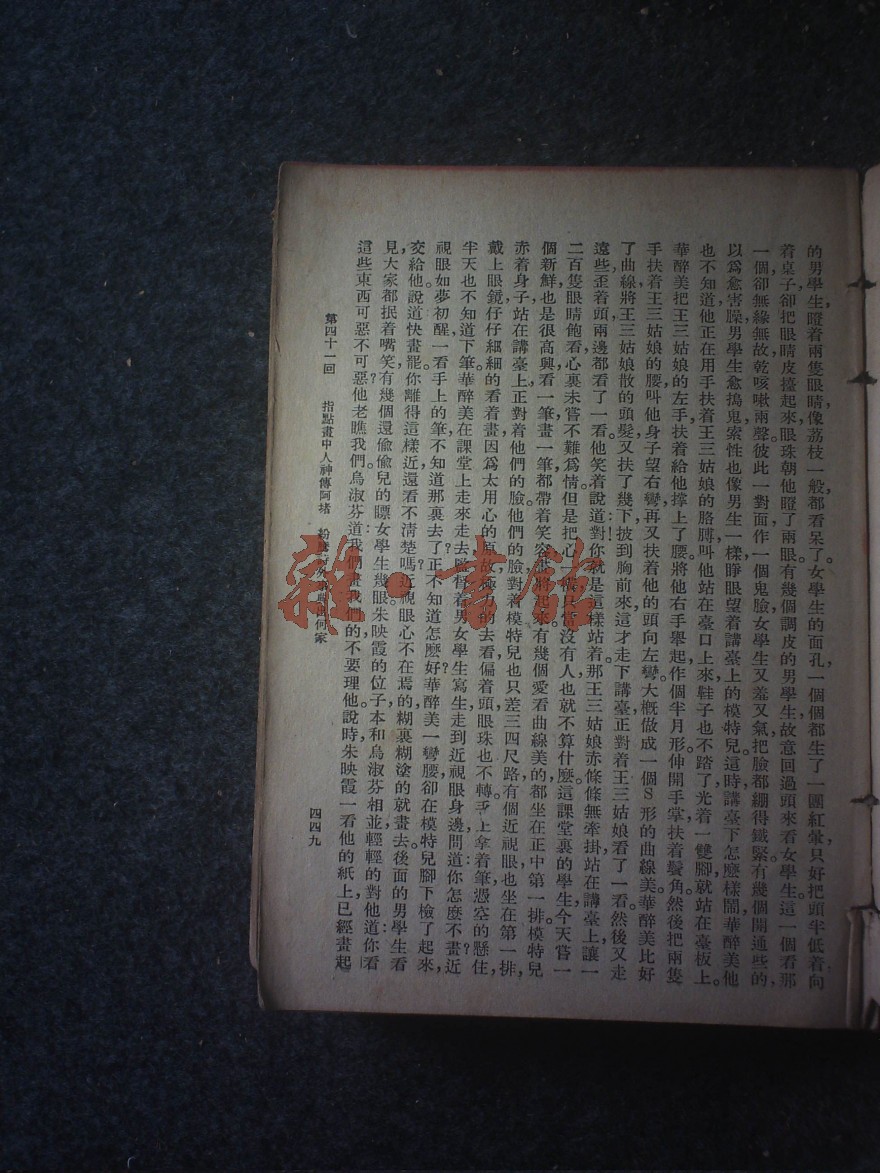 的男學生,瞪着兩隻眼睛,像荔枝一般,都看呆了。女學生的面孔,一個個都生了一團紅暈,只好把頭半低着向
着桌子,卻把眼睛皮擡起來,眼珠朝他瞪了兩眼。有幾個調皮的男學生,故意回過頭來看女學生。這一個看那
一個,卻無緣無故,乾咳嗽兩聲。彼此一對面,作一個鬼臉。女學生又羞又氣,把臉都綳得鐵緊。有幾個開通些的,
以爲愈害臊,男學生愈搗鬼,索性也像男生一樣,睜眼望着講臺上的模特兒。這時,講臺下怎麽樣鬧,華醉美他
也不知道,他正在用手扶着王三姑娘的胳膊,叫他站在臺口上來,鞋子也不踏了,光着一雙腳,就站在臺板上。
華醉美把王三姑娘的左手,扶着給他撑上了腰。將他右手舉起,作個半月形。伸開手掌,扶着鬢角。然後把兩隻
手扶着王三姑娘的腰,叫他身子望右彎,再又扶着他的頭向左彎。大概做成一個S形的曲線美。華醉美比好
了曲線,將王三姑娘散的頭髮,又扶了幾下,披到胸前來,這才走下講臺,正對着王三姑娘看了一看。然後又走
遠些,歪着頭,兩邊都看了一看。他笑着說道:對!你就是這樣站着。那王三姑娘赤條條無牽掛,站在講臺上,讓一
二百隻眼睛飽看,心裏未嘗不難爲情。但是把心一橫,只當沒有人,也就不算什麽。這課堂裏的學生,今天嘗一
個新鮮,也是很高興,看一筆,畫一筆,都帶着笑容,畫將起來。有幾個愛看曲線美的,都坐在正中第一排。模特兒
赤着身子站在講臺上,正對着他們的臉。他們的臉,對着模特兒,也只差三四尺路。有個近視眼,也坐在第一排,
戴上眼鏡,仔仔細細的看着畫。因爲太用心的原故,極力的去看,偏着頭,眼珠也不轉,手上拿着筆,憑空的懸住,
半天也不知道下筆。華醉美在課堂上走來走去,監督着男女學生寫生,走到近視眼身邊,問道:你怎麽不畫?近
視眼如夢初醒,一看手上的筆,不知道那裏去了?正不知道怎麽好?華醉美一彎腰,卻在模特兒腳下檢了起來,
交給他。說道:快畫罷,你離得這樣近,還看不清楚嗎?近視眼心不在焉的,糊裏糊塗的就畫去。後面的男學生看
見,大家都抿着嘴笑,有幾個還偷偷兒的瞟女學生幾眼。朱映霞的位子,本和烏淑芬相並,輕輕的對他道:你看
這些東西可惡不可惡?他老瞧我們。烏淑芬道:我們畫我們的,不要理他。說時,朱映霞一看他的紙上,已經畫起
第四十一回 指點畫中人神傳阿堵 紛 何家
四四九
雜·書館